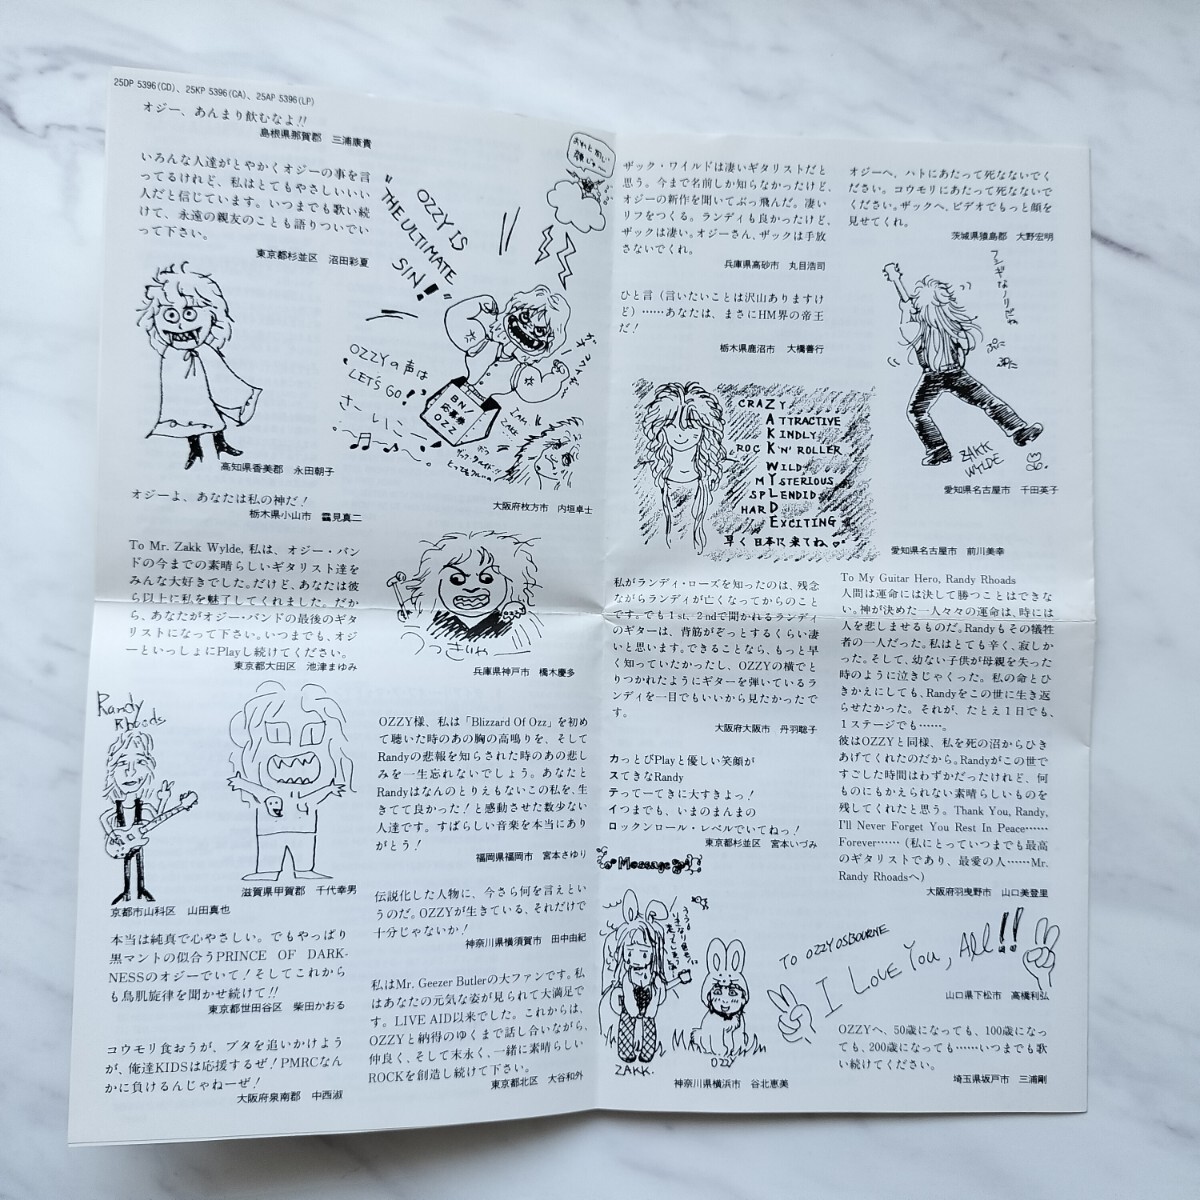 25DP 5396(CD)、25KP 5396(CA)、25AP 5396(LP)
オジー、あんまり飲むなよ!!
島根県那賀郡　三浦康貴
いろんな人達がとやかくオジーの事を言
ってるけれど、私はとてもやさしいいい
人だと信じています。いつまでも歌い続
けて、永遠の親友のことも語りついでい
って下さい。
東京都杉並区　沼田彩夏
高知県香美郡　永田朝子
"OZZY IS
THE ULTIMATE
SIN!"
OZZYの声は
LET'S GO!
さーいこー
BN/
応募券
OZZ
I AM
JAKE
大阪府枚方市　内垣卓士
オジーよ、あなたは私の神だ！
栃木県小山市　靍見真二
To Mr. Zakk Wylde, 私は、オジー・バン
ドの今までの素晴らしいギタリスト達を
みんな大好きでした。だけど、あなたは彼
ら以上に私を魅了してくれました。だか
ら、あなたがオジー・バンドの最後のギタ
リストになって下さい。いつまでも、オジ
ーといっしょにPlayし続けてください。
東京都大田区　池津まゆみ
うっきいやー
兵庫県神戸市　橋木慶多
Randy
Rhoads
京都市山科区　山田真也
滋賀県甲賀郡　千代幸男
本当は純真で心やさしい。でもやっぱり
黒マントの似合うPRINCE OF DARK-
NESSのオジーでいて！そしてこれから
も鳥肌旋律を聞かせ続けて!!
東京都世田谷区　柴田かおる
コウモリ食おうが、ブタを追いかけよう
が、俺達KIDSは応援するぜ！PMRCなん
かに負けるんじゃねーぜ！
大阪府泉南郡　中西淑
OZZY様、私は「Blizzard Of Ozz」を初め
て聴いた時のあの胸の高鳴りを、そして
Randyの悲報を知らされた時のあの悲し
みを一生忘れないでしょう。あなたと
Randyはなんのとりえもないこの私を、生
きてて良かった！と感動させた数少ない
人達です。すばらしい音楽を本当にあり
がとう！
福岡県福岡市　宮本さゆり
伝説化した人物に、今さら何を言えとい
うのだ。OZZYが生きている、それだけで
十分じゃないか！
神奈川県横須賀市　田中由紀
私はMr. Geezer Butlerの大ファンです。私
はあなたの元気な姿が見られて大満足で
す。LIVE AID以来でした。これからは、
OZZYと納得のゆくまで話し合いながら、
仲良く、そして末永く、一緒に素晴らしい
ROCKを創造し続けて下さい。
東京都北区　大谷和外
ザック・ワイルドは凄いギタリストだと
思う。今まで名前しか知らなかったけど、
オジーの新作を聞いてぶっ飛んだ。凄い
リフをつくる。ランディも良かったけど、
ザックは凄い。オジーさん、ザックは手放
さないでくれ。
兵庫県高砂市　丸目浩司
ひと言（言いたいことは沢山ありますけ
ど）……あなたは、まさにHM界の帝王
だ！
栃木県鹿沼市　大橋善行
CRAZY
ATTRACTIVE
KINDLY
ROCK'N'ROLLER
WILD
MYSTERIOUS
SPLENDID
HARD
EXCITING
早く日本に来てね
愛知県名古屋市　前川美幸
オジーへ、ハトにあたって死なないでく
ださい。コウモリにあたって死なないで
ください。ザックへ、ビデオでもっと顔を
見せてくれ。
茨城県猿島郡　大野宏明
フシギなノリだね
ZAKK
WYLDE
愛知県名古屋市　千田英子
私がランディ・ローズを知ったのは、残念
ながらランディが亡くなってからのこと
です。でも1st、2ndで聞かれるランディ
のギターは、背筋がぞっとするくらい凄
いと思います。できることなら、もっと早
く知っていたかったし、OZZYの横でと
りつかれたようにギターを弾いているラ
ンディを一目でもいいから見たかったで
す。
大阪府大阪市　丹羽聡子
カっとびPlayと優しい笑顔が
ステきなRandy
テってーてきに大すきよっ！
イつまでも、いまのまんまの
ロックンロール・レベルでいてねっ！
東京都杉並区　宮本いづみ
Message
ZAKK.
OZZY
神奈川県横浜市　谷北恵美
To My Guitar Hero, Randy Rhoads
人間は運命には決して勝つことはできな
い。神が決めた一人々々の運命は、時には
人を悲しませるものだ。Randyもその犠牲
者の一人だった。私はとても辛く、寂しか
った。そして、幼ない子供が母親を失った
時のように泣きじゃくった。私の命とひ
きかえにしても、Randyをこの世に生き返
らせたかった。それが、たとえ1日でも、
1ステージでも……。
彼はOZZYと同様、私を死の沼からひき
あげてくれたのだから。Randyがこの世で
すごした時間はわずかだったけれど、何
ものにもかえられない素晴らしいものを
残してくれたと思う。Thank You, Randy,
I'll Never Forget You Rest In Peace……
Forever……（私にとっていつまでも最高
のギタリストであり、最愛の人……Mr.
Randy Rhoadsへ）
大阪府羽曳野市　山口美登里
TO OZZY OSBOURNE
I LOVE YOU, ALL!!
山口県下松市　高橋利弘
OZZYへ、50歳になっても、100歳になっ
ても、200歳になっても……いつまでも歌
い続けてください。
埼玉県坂戸市　三浦剛